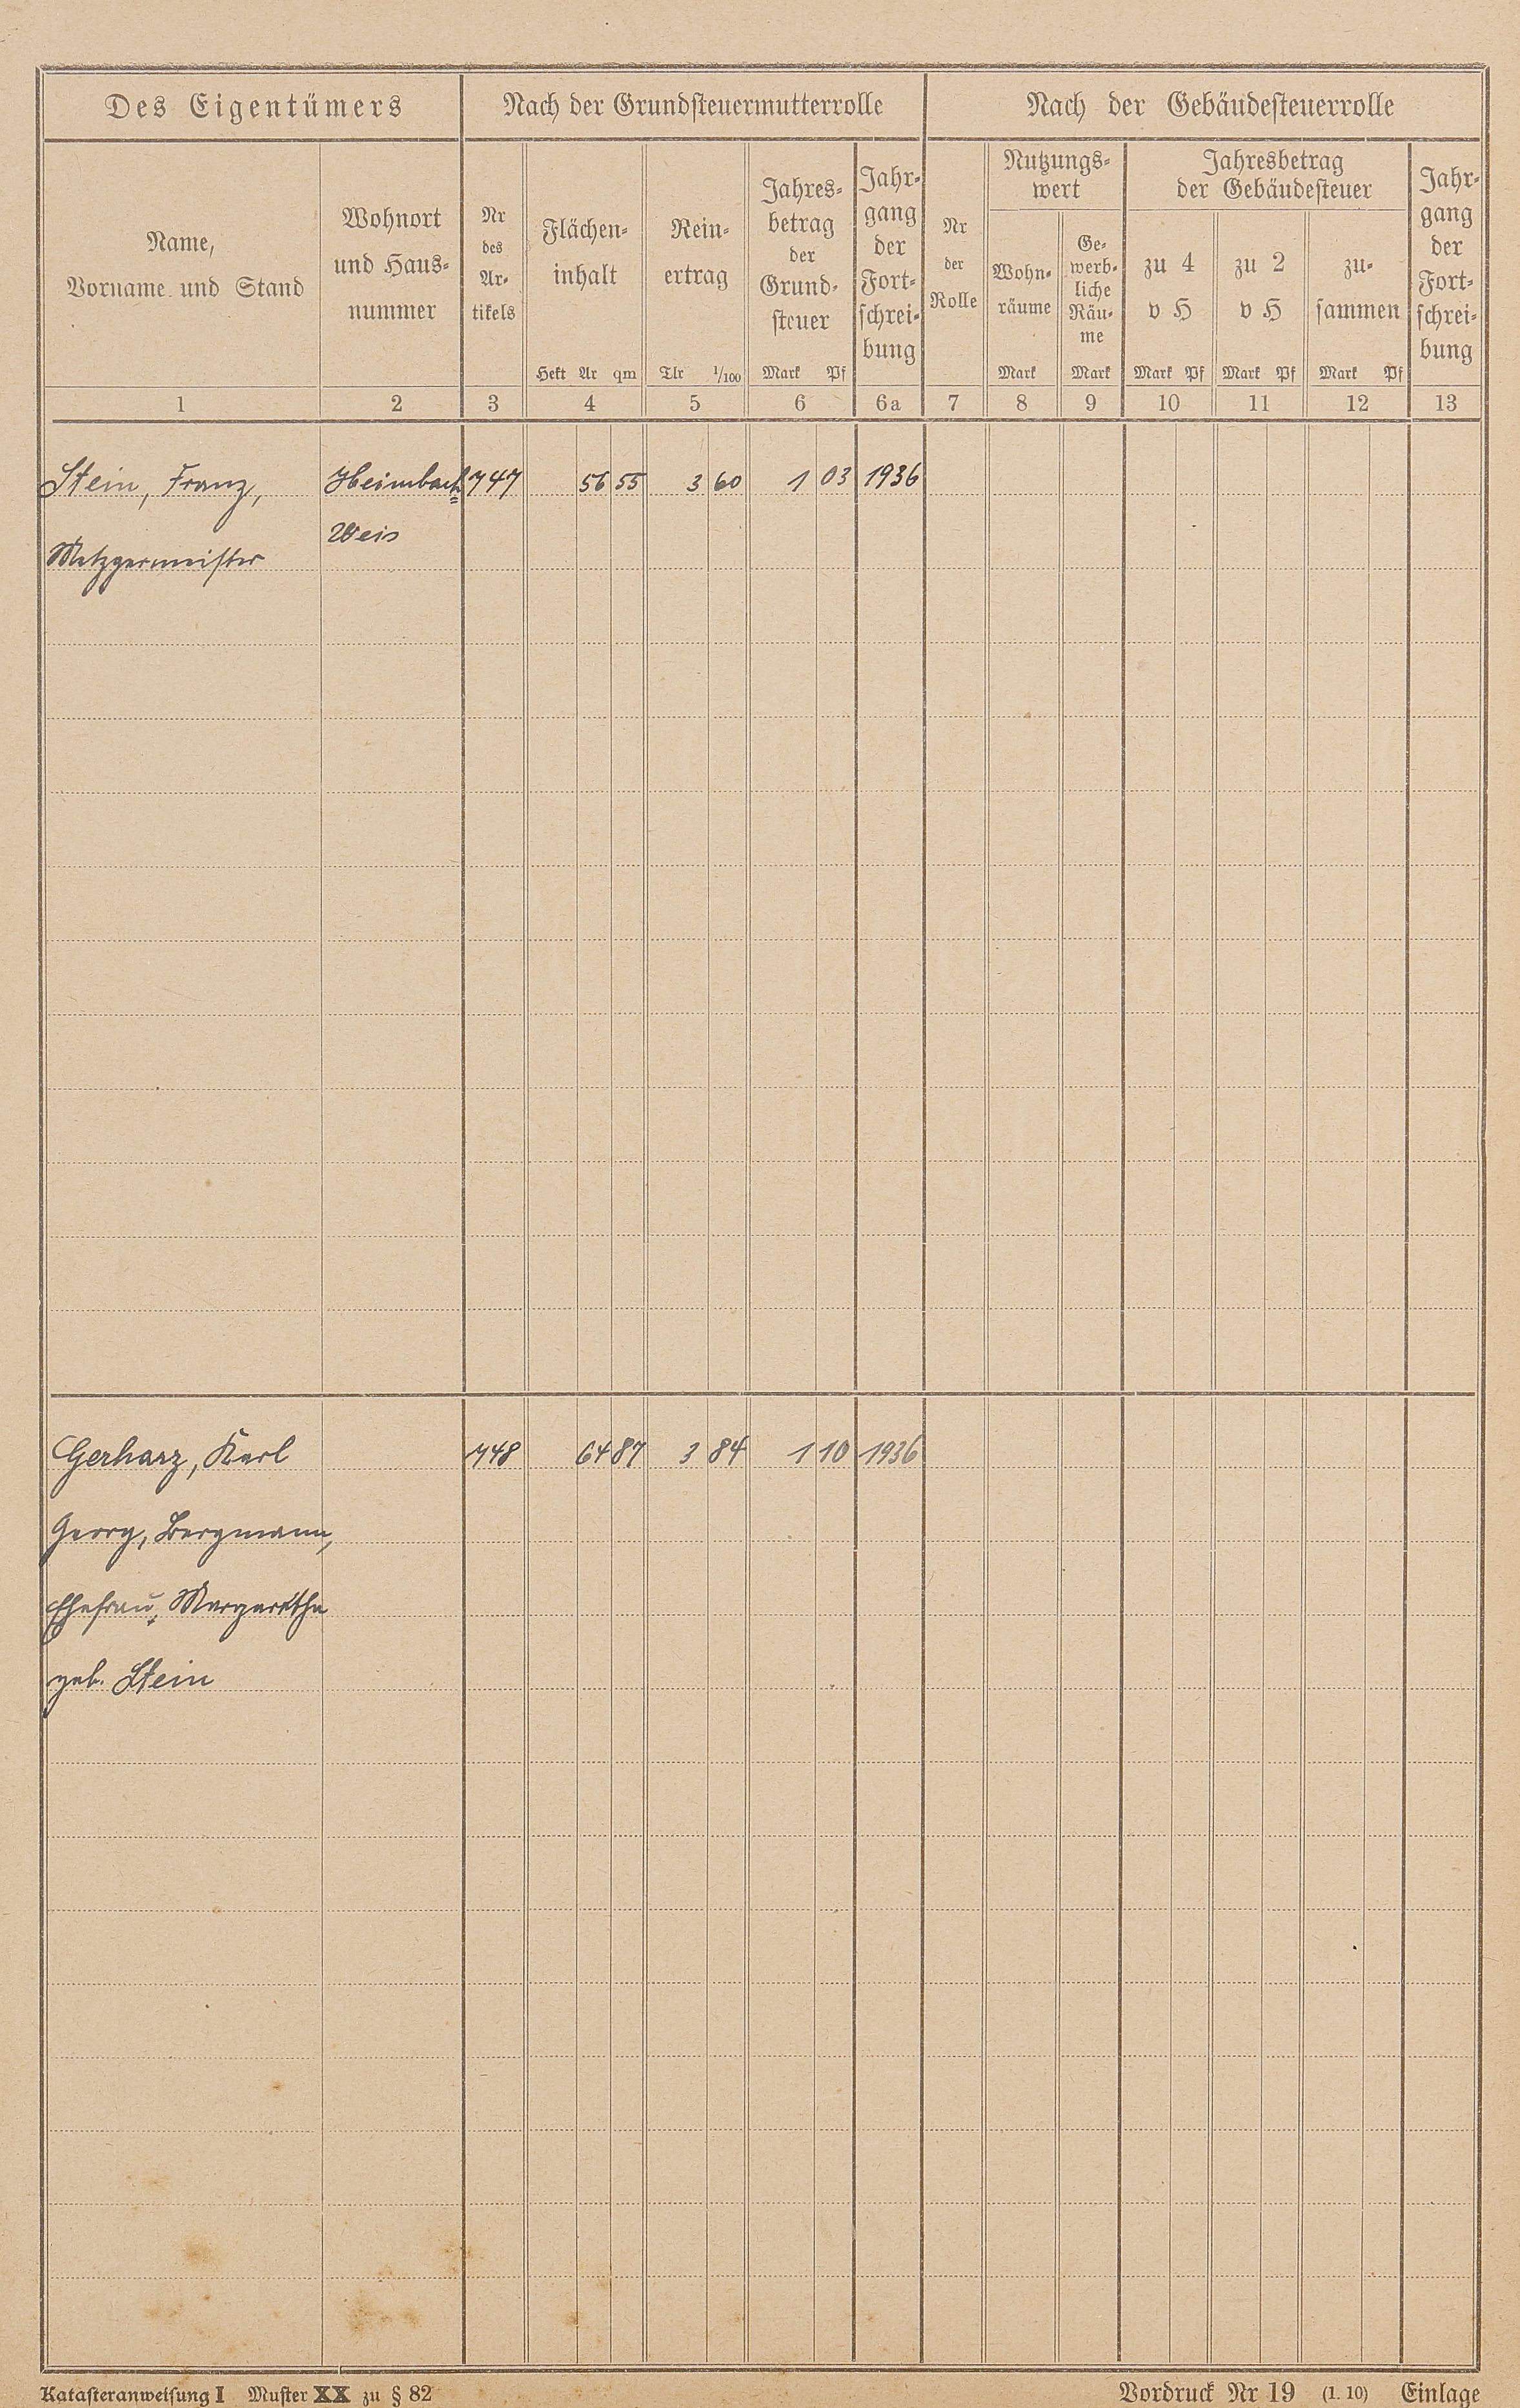 Des Eigentümers
Nach der Grundsteuermutterrolle
Nach der Gebäudesteuerrolle
Name,
Vorname und Stand
Wohnort
und Haus-
nummer
Nr
des
Ar-
tikels
Flächen-
inhalt
Hekt Ar qm
Rein-
ertrag
Tlr 1/100
Jahres-
betrag
der
Grund-
steuer
Mark Pf
Jahr-
gang
der
Fort-
schrei-
bung
Nr
der
Rolle
Nutzungs-
wert
Wohn-
räume
Mark
Ge-
werb-
liche
Räu-
me
Mark
Jahresbetrag
der Gebäudesteuer
zu 4
v H
Mark Pf
zu 2
v H
Mark Pf
zu-
sammen
Mark Pf
Jahr-
gang
der
Fort-
schrei-
bung
1 2 3 4 5 6 6a 7 8 9 10 11 12 13
Stein, Franz, Heimbach= 747 56 55 3 60 1 03 1936
Weis
Metzgermeister
Gerharz, Karl 748 64 87 3 84 1 10 1936
Georg, Bergmann,
Ehefrau, Margaretha
geb. Stein
Katasteranweisung I Muster XX zu § 82
Vordruck Nr 19 (1. 10) Einlage